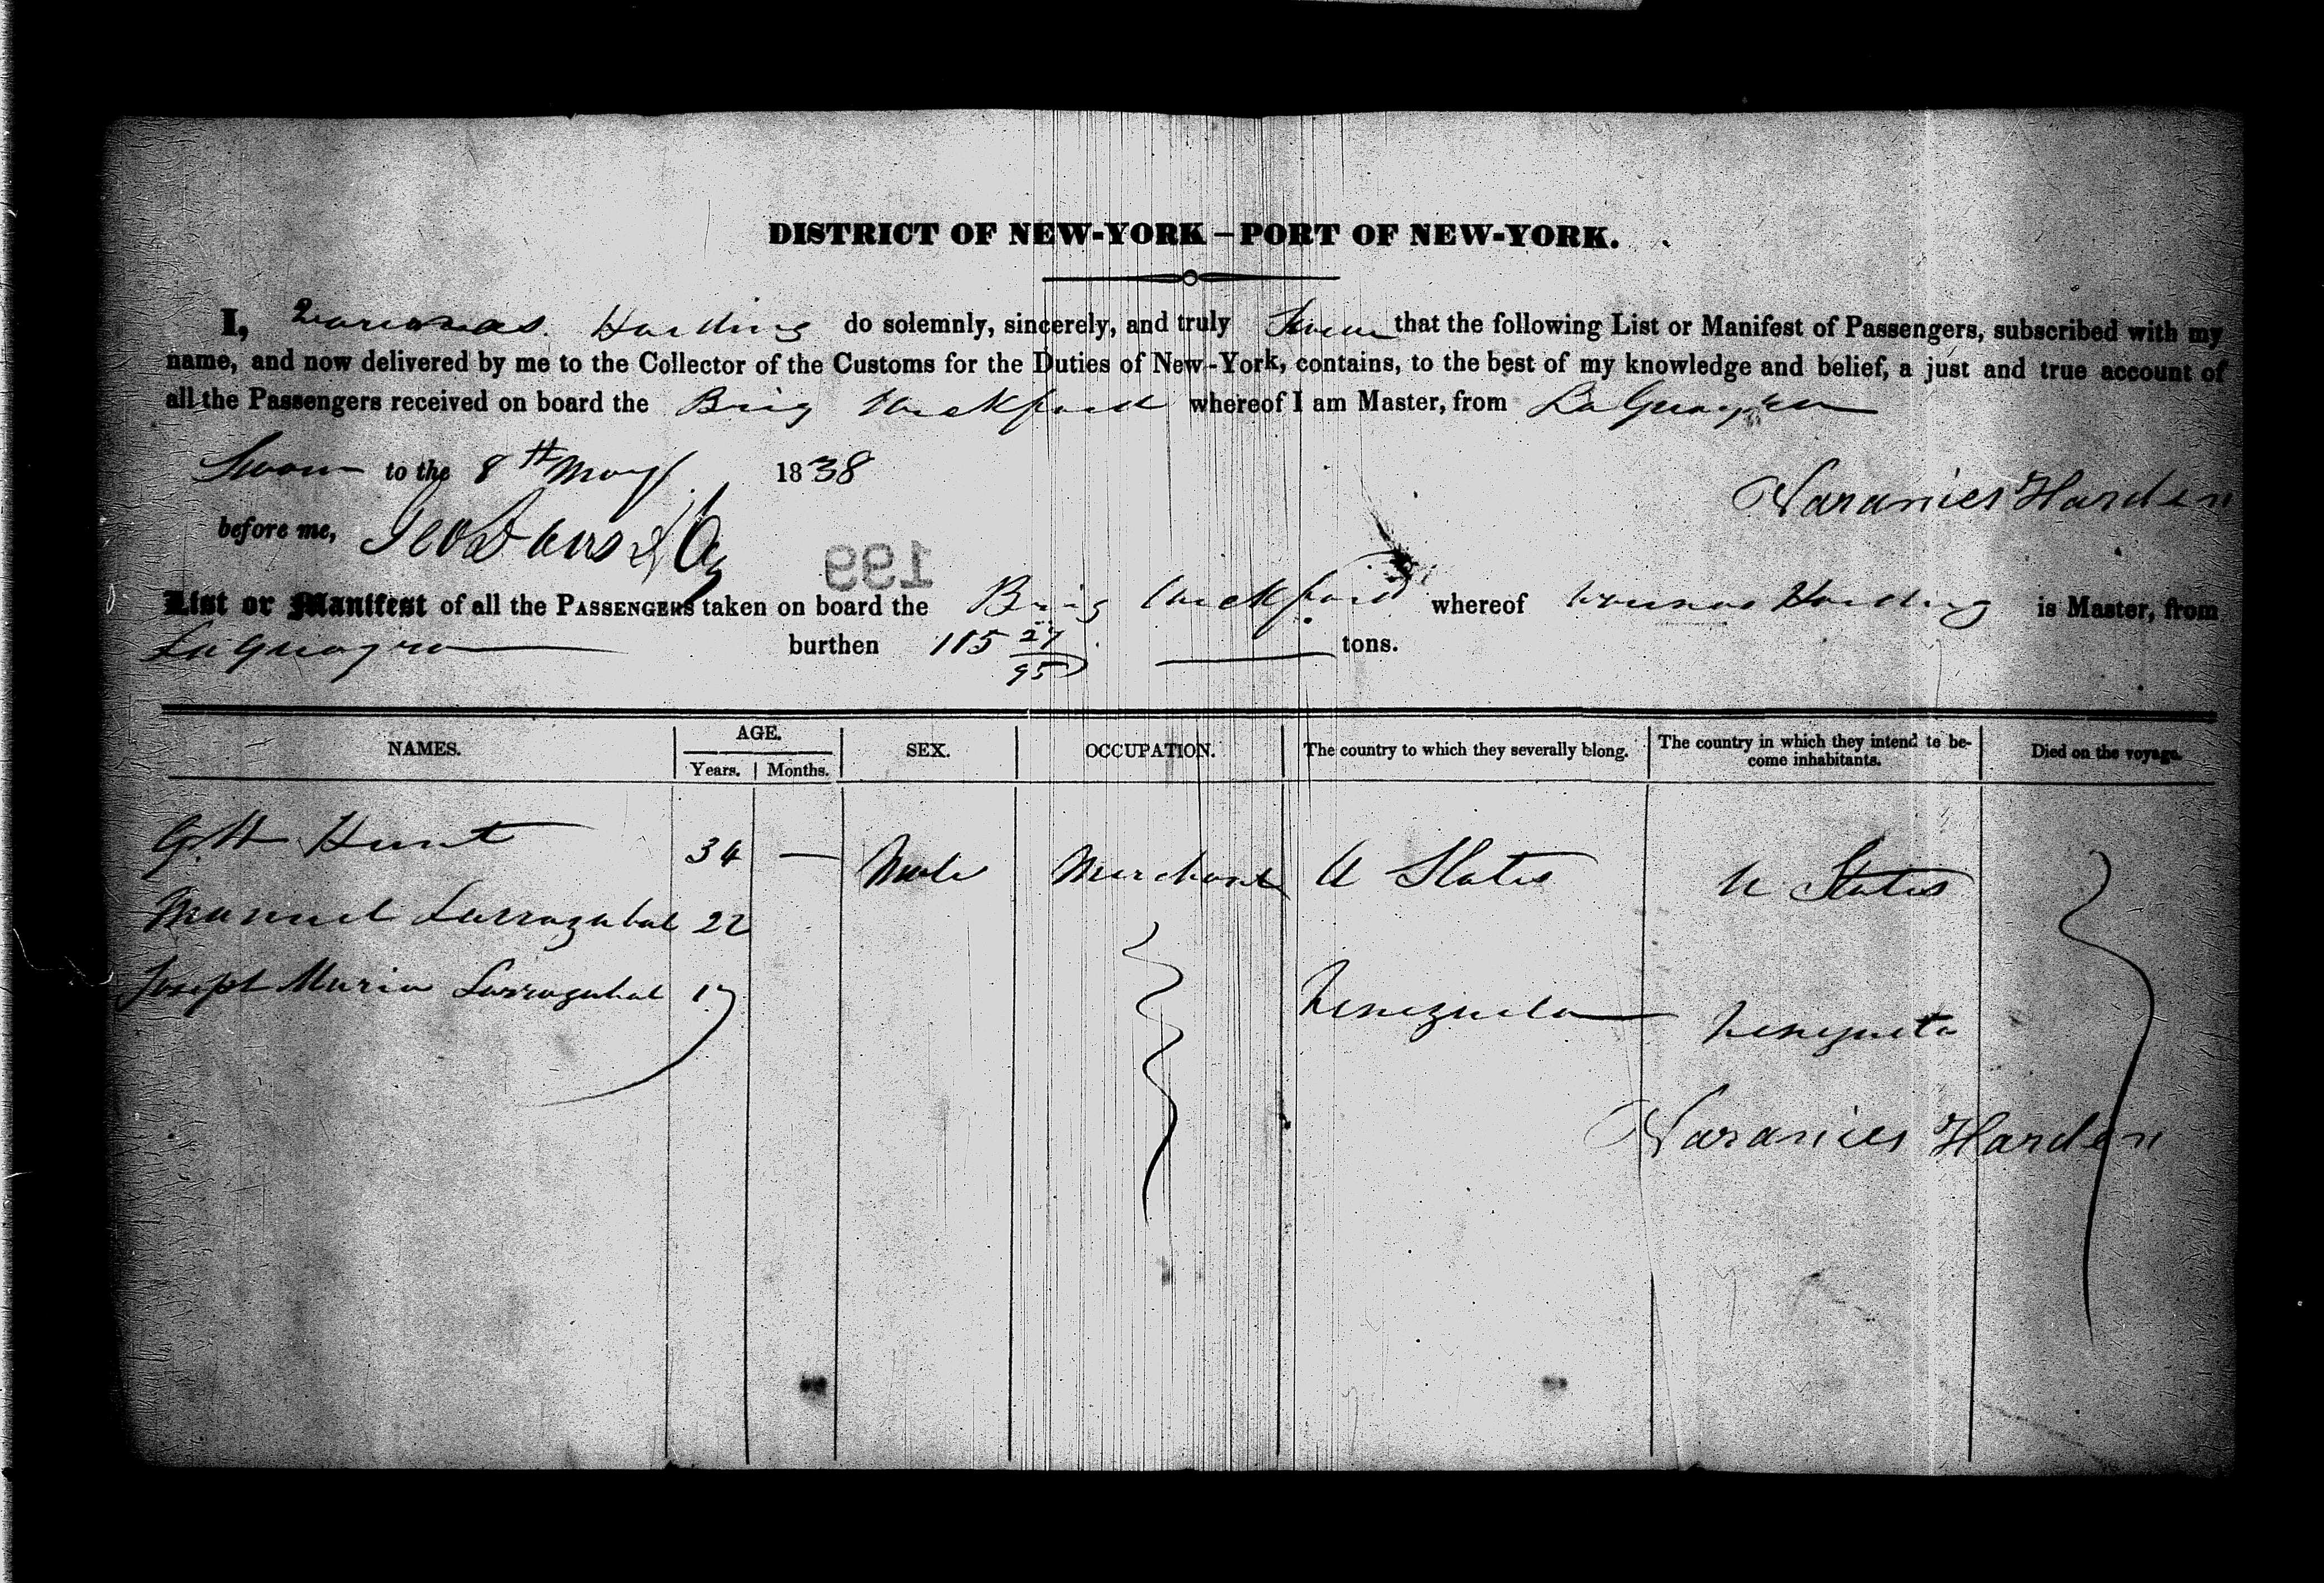 DISTRICT OF NEW-YORK – PORT OF NEW-YORK.
I, Harding do solemnly, sincerely, and truly Swear that the following List or Manifest of Passengers, subscribed with my
name, and now delivered by me to the Collector of the Customs for the Duties of New-York, contains, to the best of my knowledge and belief, a just and true account of
all the Passengers received on board the Brig whereof I am Master, from LaGuayra
Sworn to the 8th May 1838
Harden
before me,
199
List or Manifest of all the PASSENGERS taken on board the Brig whereof Harding is Master, from
LaGuayra burthen 115 27/95 tons.
NAMES. AGE. SEX. OCCUPATION. The country to which they severally blong. The country in which they intend to be-come inhabitants. Died on the voyage.
Years. Months.
G.H Hunt 34 — Male Merchant U States U States
Manuel Larrazabal 22
Joseph Maria Larrazabal 17 Venezuela Venezuela
Harden